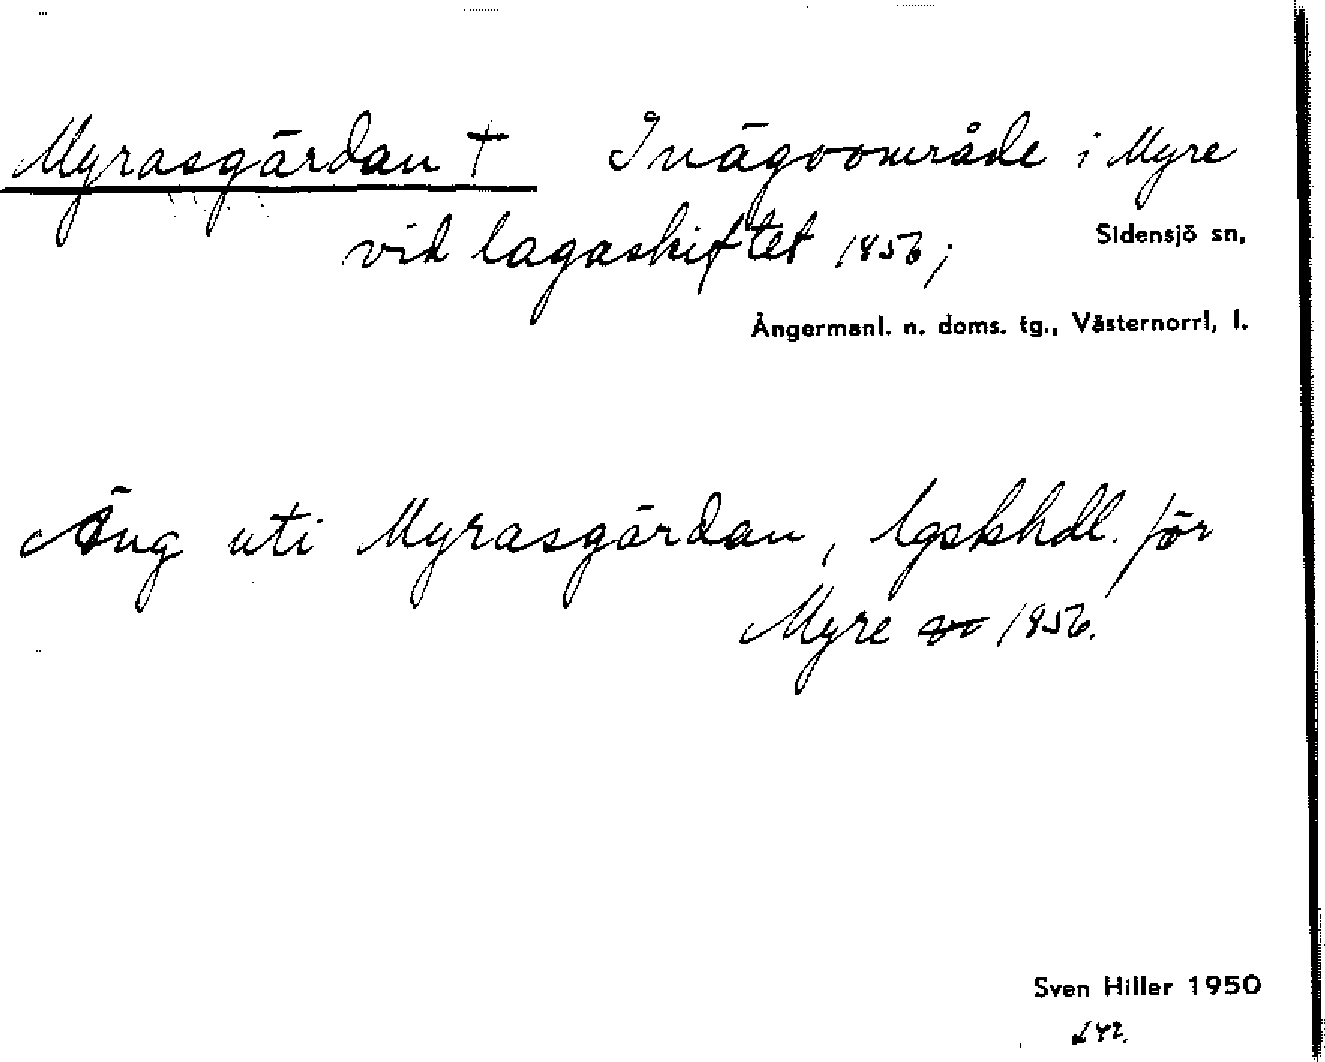 Myrasgärdan † Inägoområde i Myre
vid lagaskiftet 1856;
Sidensjö sn,
Ångermanl. n. doms. tg., Västernorrl, l.
Äng uti Myrasgärdan, lgskhdl. för
Myre 1856.
Sven Hiller 1950